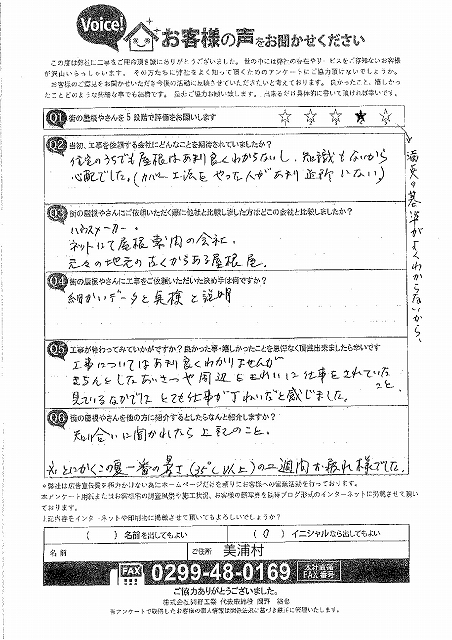 Voice!
お客様の声をお聞かせください
この度は弊社に工事をご用命頂き誠にありがとうございます。世の中には弊社の存在やサービスをご存知ないお客様
が沢山いらっしゃいます。その方たちに弊社をよく知って頂くためのアンケートにご協力頂けないでしょうか。
お客様のご意見をお聞かせいただき今後の活動に反映させていただきたいと考えております。良かったこと、嬉しかっ
たことどのような些細な事でも結構です。是非ご協力お願い致します。出来るだけ具体的に書いて頂ければ幸いです。
Q1 街の屋根やさんを5段階で評価をお願いします
☆ ☆ ☆ ★ ☆
→満点の基準がよくわからないから、
Q2 当初、工事を依頼する会社にどんなことを期待されていましたか?
住宅のうちでも屋根はあまり良くわからないし、知識もないから
心配でした。(カバー工法をやった人があまり近所にない)
Q3 街の屋根やさんにご依頼いただく際に他社と比較しました方はどこの会社と比較しましたか?
ハウスメーカー・
ネットにて屋根案内の会社、
元々の地元の古くからある屋根屋。
Q4 街の屋根やさんに工事をご依頼いただいた決め手は何ですか?
細かいデータと見積と説明
Q5 工事が終わってみていかがですか?良かった事・嬉しかったことを忌憚なく頂戴出来ましたら幸いです
工事についてはあまり良くわかりませんが
きちんとしたあいさつや周辺をきれいに仕事をされていたこと、
見ているなかでは とても仕事がていねいだと感じました。
Q6 街の屋根やさんを他の方に紹介するとしたらなんと紹介しますか?
知り合いに聞かれたら上記のこと。
※とにかくこの夏一番の暑さ(35℃以上)の二週間お疲れ様でした。
※弊社は広告宣伝費を極力かけない為にホームページだけを頼りにお客様への営業活動を行っております。
本アンケート用紙またはお客様宅の調査風景や施工状況、お客様の顔写真を以後ブログ形式のインターネットに掲載させて頂いて
おります。
上記内容をインターネットや印刷物に掲載させて頂いてもよろしいでしょうか?
( )名前を出してもよい (○)イニシャルなら出してもよい
名前
ご住所 美浦村
FAX 0299-48-0169 本社直通 FAX番号
ご協力ありがとうございました。
※アンケートで取得したお客様の個人情報は関係法令に基づき厳正に管理いたします。